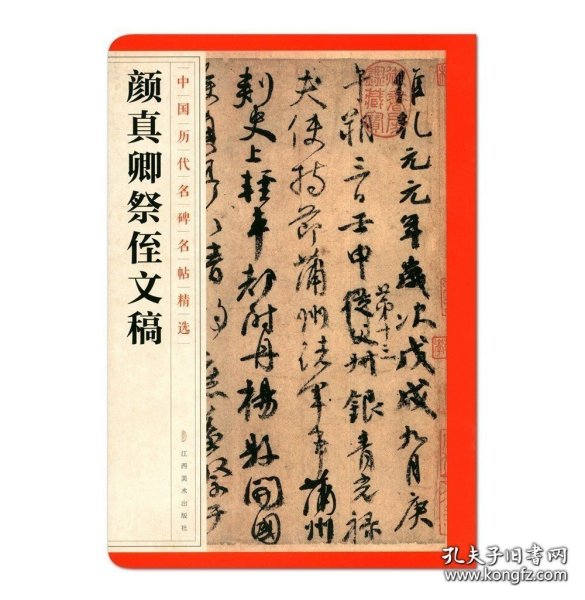 颜真卿祭侄文稿
中国历代名碑名帖精选
江西美术出版社
維乾元元年歲次戊戌九月庚
午朔三日壬申
第十三
銀青光祿
夫使持節蒲州諸軍事蒲州
刺史上輕車都尉丹楊縣開國
孔夫子旧书网
www.kongfz.com